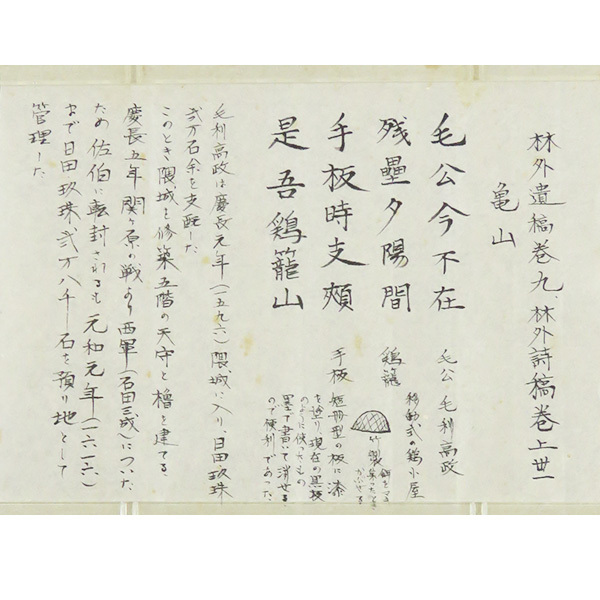 林外遺稿巻九、林外詩稿巻上卅一
亀山
毛公今不在
残壘夕陽間
手板時支頰
是吾鶏籠山
毛公 毛利高政
移動式の鶏小屋
鶏籠
竹製
手板 短冊型の板に漆
を塗り、現在の黒板
のように使ったもの
墨で書いて消せる
ので便利であった。
毛利高政は慶長元年(一五九六)隈城に入り、日田玖珠
弐万石余を支配した
このとき隈城を修築五階の天守と櫓を建てる、
慶長五年関ヶ原の戦より西軍(石田三成)についた
ため佐伯に転封されるも元和元年(一六一六)
まで日田玖珠弐万八千石を預り地として
管理した